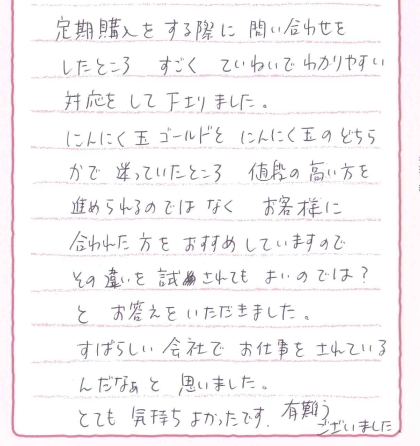 定期購入をする際に 問い合わせを
したところ すごく ていねいで わかりやすい
対応をして下さりました。
にんにく玉ゴールドと にんにく玉のどちら
かで 迷っていたところ 値段の高い方を
進められるのでは なく お客様に
合われた方を おすすめしていますので
その違いを 試されても よいのでは?
と お答えをいただきました。
すばらしい会社で お仕事を されている
んだなぁと 思いました。
とても 気持ち よかったです. 有難う
ございました